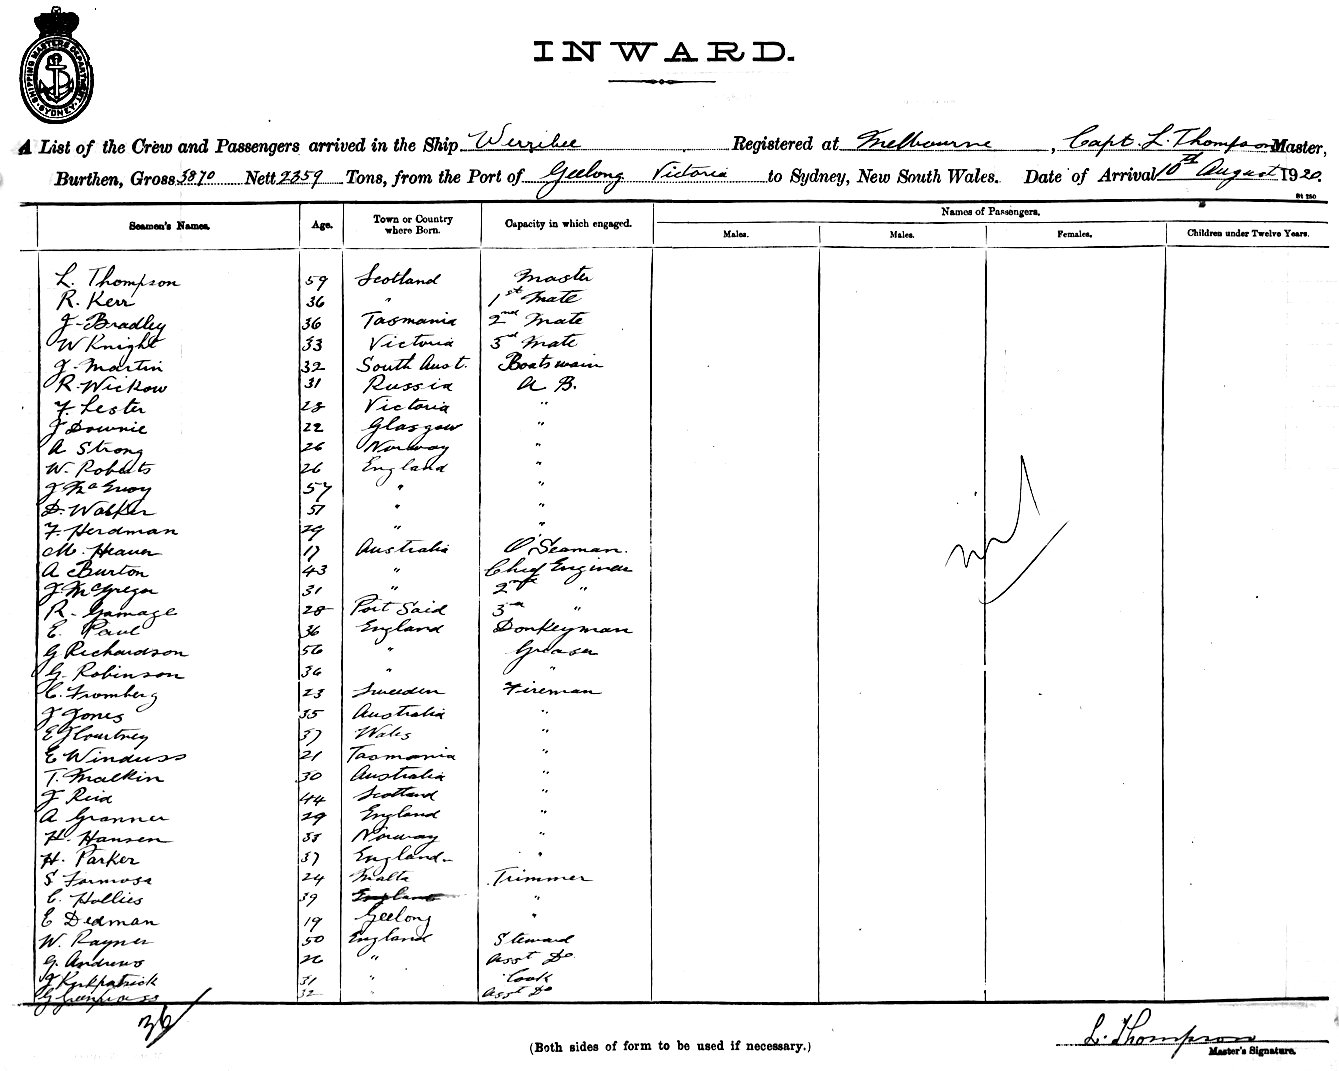 SHIPPING MASTERS DEPARTMENT SYDNEY
INWARD.
A List of the Crew and Passengers arrived in the Ship Werribee Registered at Melbourne, Capt L. Thompson Master,
Burthen, Gross 3870 Nett 2359 Tons, from the Port of Geelong Victoria to Sydney, New South Wales. Date of Arrival 10th August 1920.
Seamen's Names. Age. Town or Country where Born. Capacity in which engaged. Names of Passengers.
Males. Males. Females. Children under Twelve Years.
L. Thompson 59 Scotland Master
R. Kerr 36 " 1st Mate
J. Bradley 36 Tasmania 2nd Mate
W Knight 33 Victoria 3rd Mate
J. Martin 32 South Aust. Boatswain
R. Wickow 31 Russia A B.
F. Lester 28 Victoria "
J Downie 22 Glasgow "
A Strong 26 Norway "
W. Roberts 26 England "
J McEvoy 57 " "
D. Walker 51 " "
F. Herdman 29 " "
M. Heaver 17 Australia O'Seaman.
A Burton 43 " Chief Engineer
J McGregor 31 " 2nd "
R. Gamage 28 Port Said 3rd "
E. Paul 36 England Donkeyman
G Richardson 56 " Greaser
G. Robinson 36 " "
C. Fromberg 23 Sweeden Fireman
J Jones 35 Australia "
E J Courtney 37 Wales "
E Winduss 21 Tasmania "
T. Malkin 30 Australia "
J Reid 44 Scotland "
A Granner 29 England "
H. Hansen 38 Norway "
H. Parker 37 England "
S Formosa 24 Malta Trimmer
C. Hollies 39 England "
E Dedman 19 Geelong "
W. Rayner 50 England Steward
G. Andrews 26 " Asst Do
J Kirkpatrick 31 " Cook
32 Asst Do
36
nil
(Both sides of form to be used if necessary.)
L. Thompson
Master's Signature.